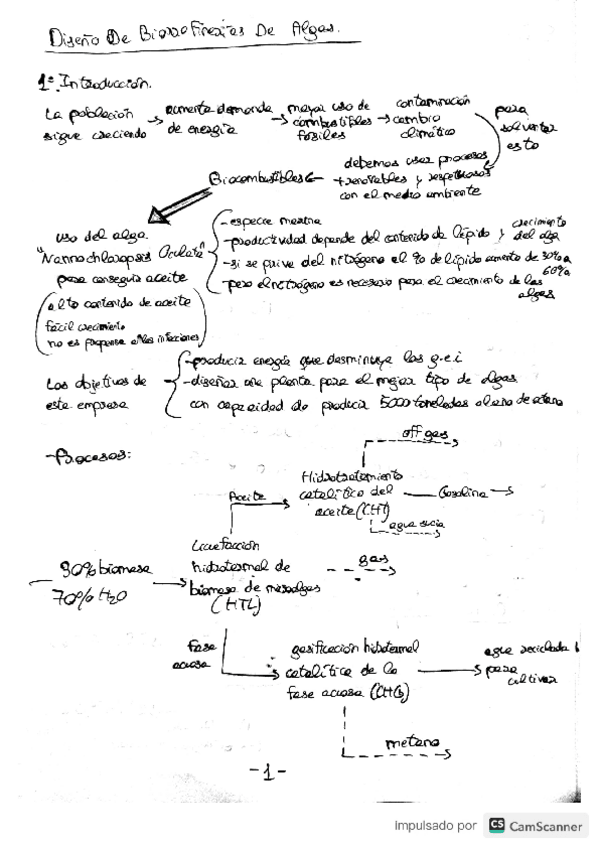 Diseño De Biorrefinerías De Algas.
1º. Introducción.
La población sigue creciendo → aumenta demanda de energía → mayor uso de combustibles fósiles → contaminación cambio climático
para solventar esto
debemos usar procesos + renovables y respetuosos con el medio ambiente
Biocombustibles
uso del alga
"Nannochloropsis Oculata"
para conseguir aceite
alto contenido de aceite
fácil crecimiento
no es propensa a las infecciones
- especie marina
- productividad depende del contenido de lípido y crecimiento del alga
- si se prive del nitrógeno el % de lípido aumenta de 30% a 60%
- pero el nitrógeno es necesario para el crecimiento de las algas
Los objetivos de
este empresa
- producir energía que desminuya los g.e.i
- diseñar una planta para el mejor tipo de algas
con capacidad de producir 5000 toneladas al año de
Procesos:
off gas
Hidrotratamiento
catalítico del
aceite (CHT)
Aceite
Gasolina
agua sucia
Licuefacción
hidrotermal de
biomasa de microalgas
(HTL)
gas
30% biomasa
70% H2O
fase
acuosa
gasificación hidrotermal
catalítica de la
fase acuosa (CHG)
agua reciclada
para
cultivar
metano
-1-
Impulsado por CS CamScanner